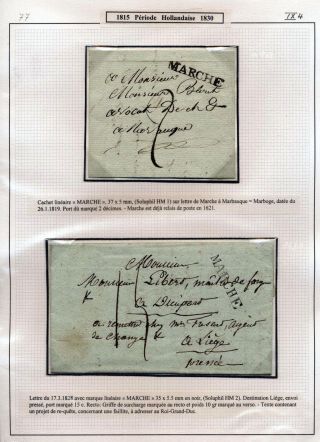 77
1815 Période Hollandaise 1830
IX 4
MARCHE
a Monsieur
Monsieur
avocat
a
Cachet linéaire « MARCHE », 37 x 5 mm, (Soluphil HM 1) sur lettre de Marche à Marbauque = Marboge, datée du
26.1.1819. Port dû marqué 2 décimes. - Marche est déjà relais de poste en 1621.
Monsieur
MARCHE
Monsieur Libert, maitre de forge
a
a remettre chez mr agent
de change
a Liège
pressée
Lettre du 17.3.1829 avec marque linéaire « MARCHE » 35 x 5.5 mm en noir, (Soluphil HM 2). Destination Liège, envoi
pressé, port marqué 15 c. Recto: Griffe de surcharge marquée au recto et poids 10 gr marqué au verso. - Texte contenant
un projet de requête, concernant une faillite, à adresser au Roi-Grand-Duc.